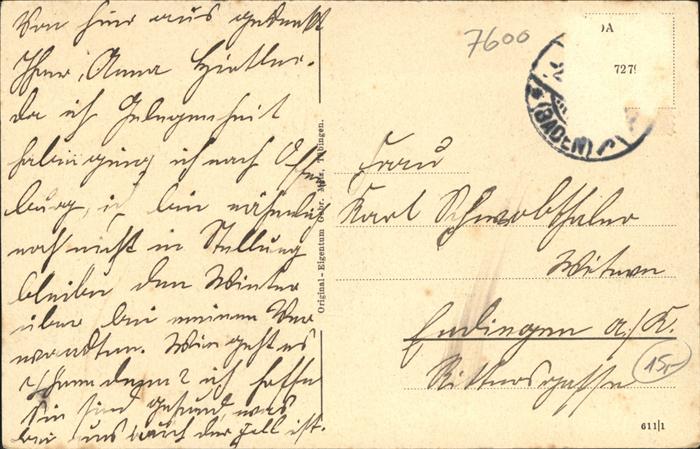 Von hier aus gedenkt
Ihrer, Anna Hirtler.
da ich Gelegenheit
habe ging ich nach Offen
burg, ich bin nähmlich
noch nicht in Stellung
bleibe den Winter
über bei meinen Ver
wandten. Wie geht es
Ihnen denn? ich hoffe
Sie sind gesund, was
bei uns auch der Fall ist.
Original-Eigentum Gebr. Metz, Tübingen.
7600
DA
727
(BADEN)
Frau
Karl Schwobthaler
Witwe
Endingen a./K.
Rittersgasse
15,-
611/1